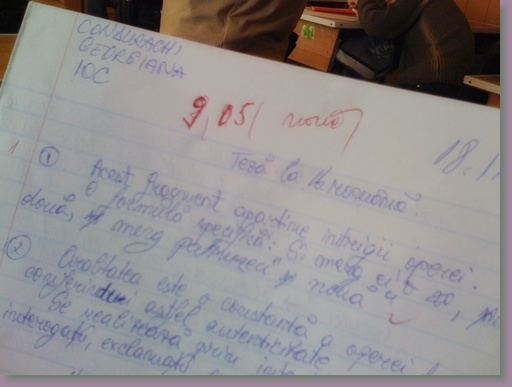 CONDURACHI
GEORGIANA
10C
9,05 / nouă /
18.1
Teză la lb. română.
1
① Acest fragment aparține intrigii operei.
O formulă specifică: "Și merg ei, o zo,
două, și merg patruzeci și nouă"
② Oralitatea este o constantă a operei
conferindu-i astfel autenticitate
Se realizează prin
interogații, exclamații